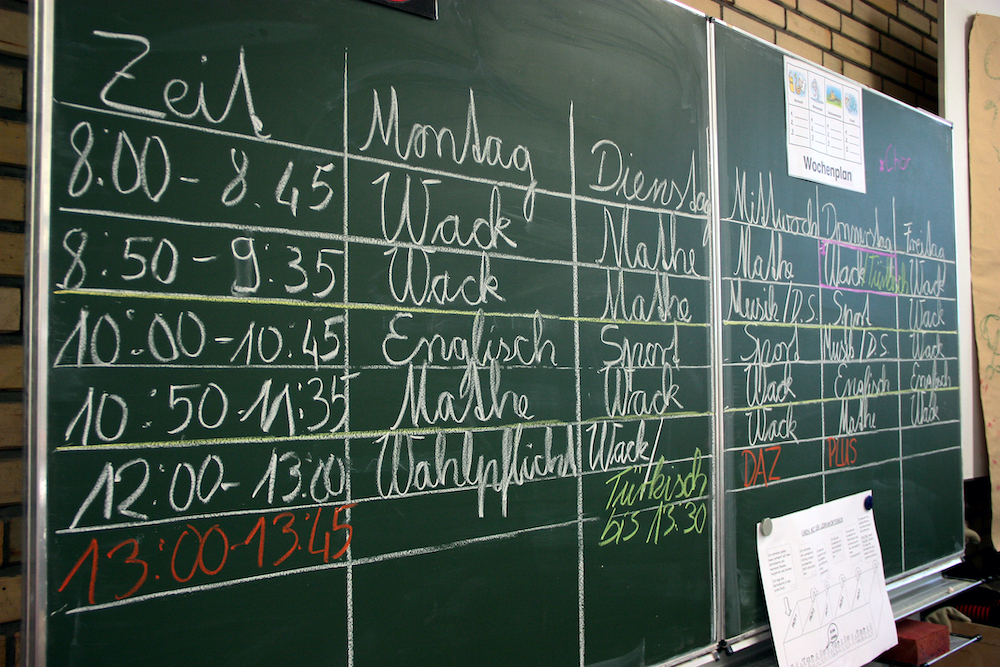 Zeit Montag Dienstag Mittwoch Donnerstag Freitag
8.00 - 8.45 Wack Mathe Mathe Wack Türkisch Wack
8:50 - 9.35 Wack Mathe Musik/D.S. Sport Wack
10:00 - 10:45 Englisch Sport Sport Musik/D.S Wack
10:50 - 11:35 Mathe Wack Wack Englisch Englisch
12:00 - 13:00 Wahlpflicht Wack/ Türkisch bis 13.30 Wack Mathe Wack
13:00 - 13:45 DAZ PLUS
Chor
Wochenplan